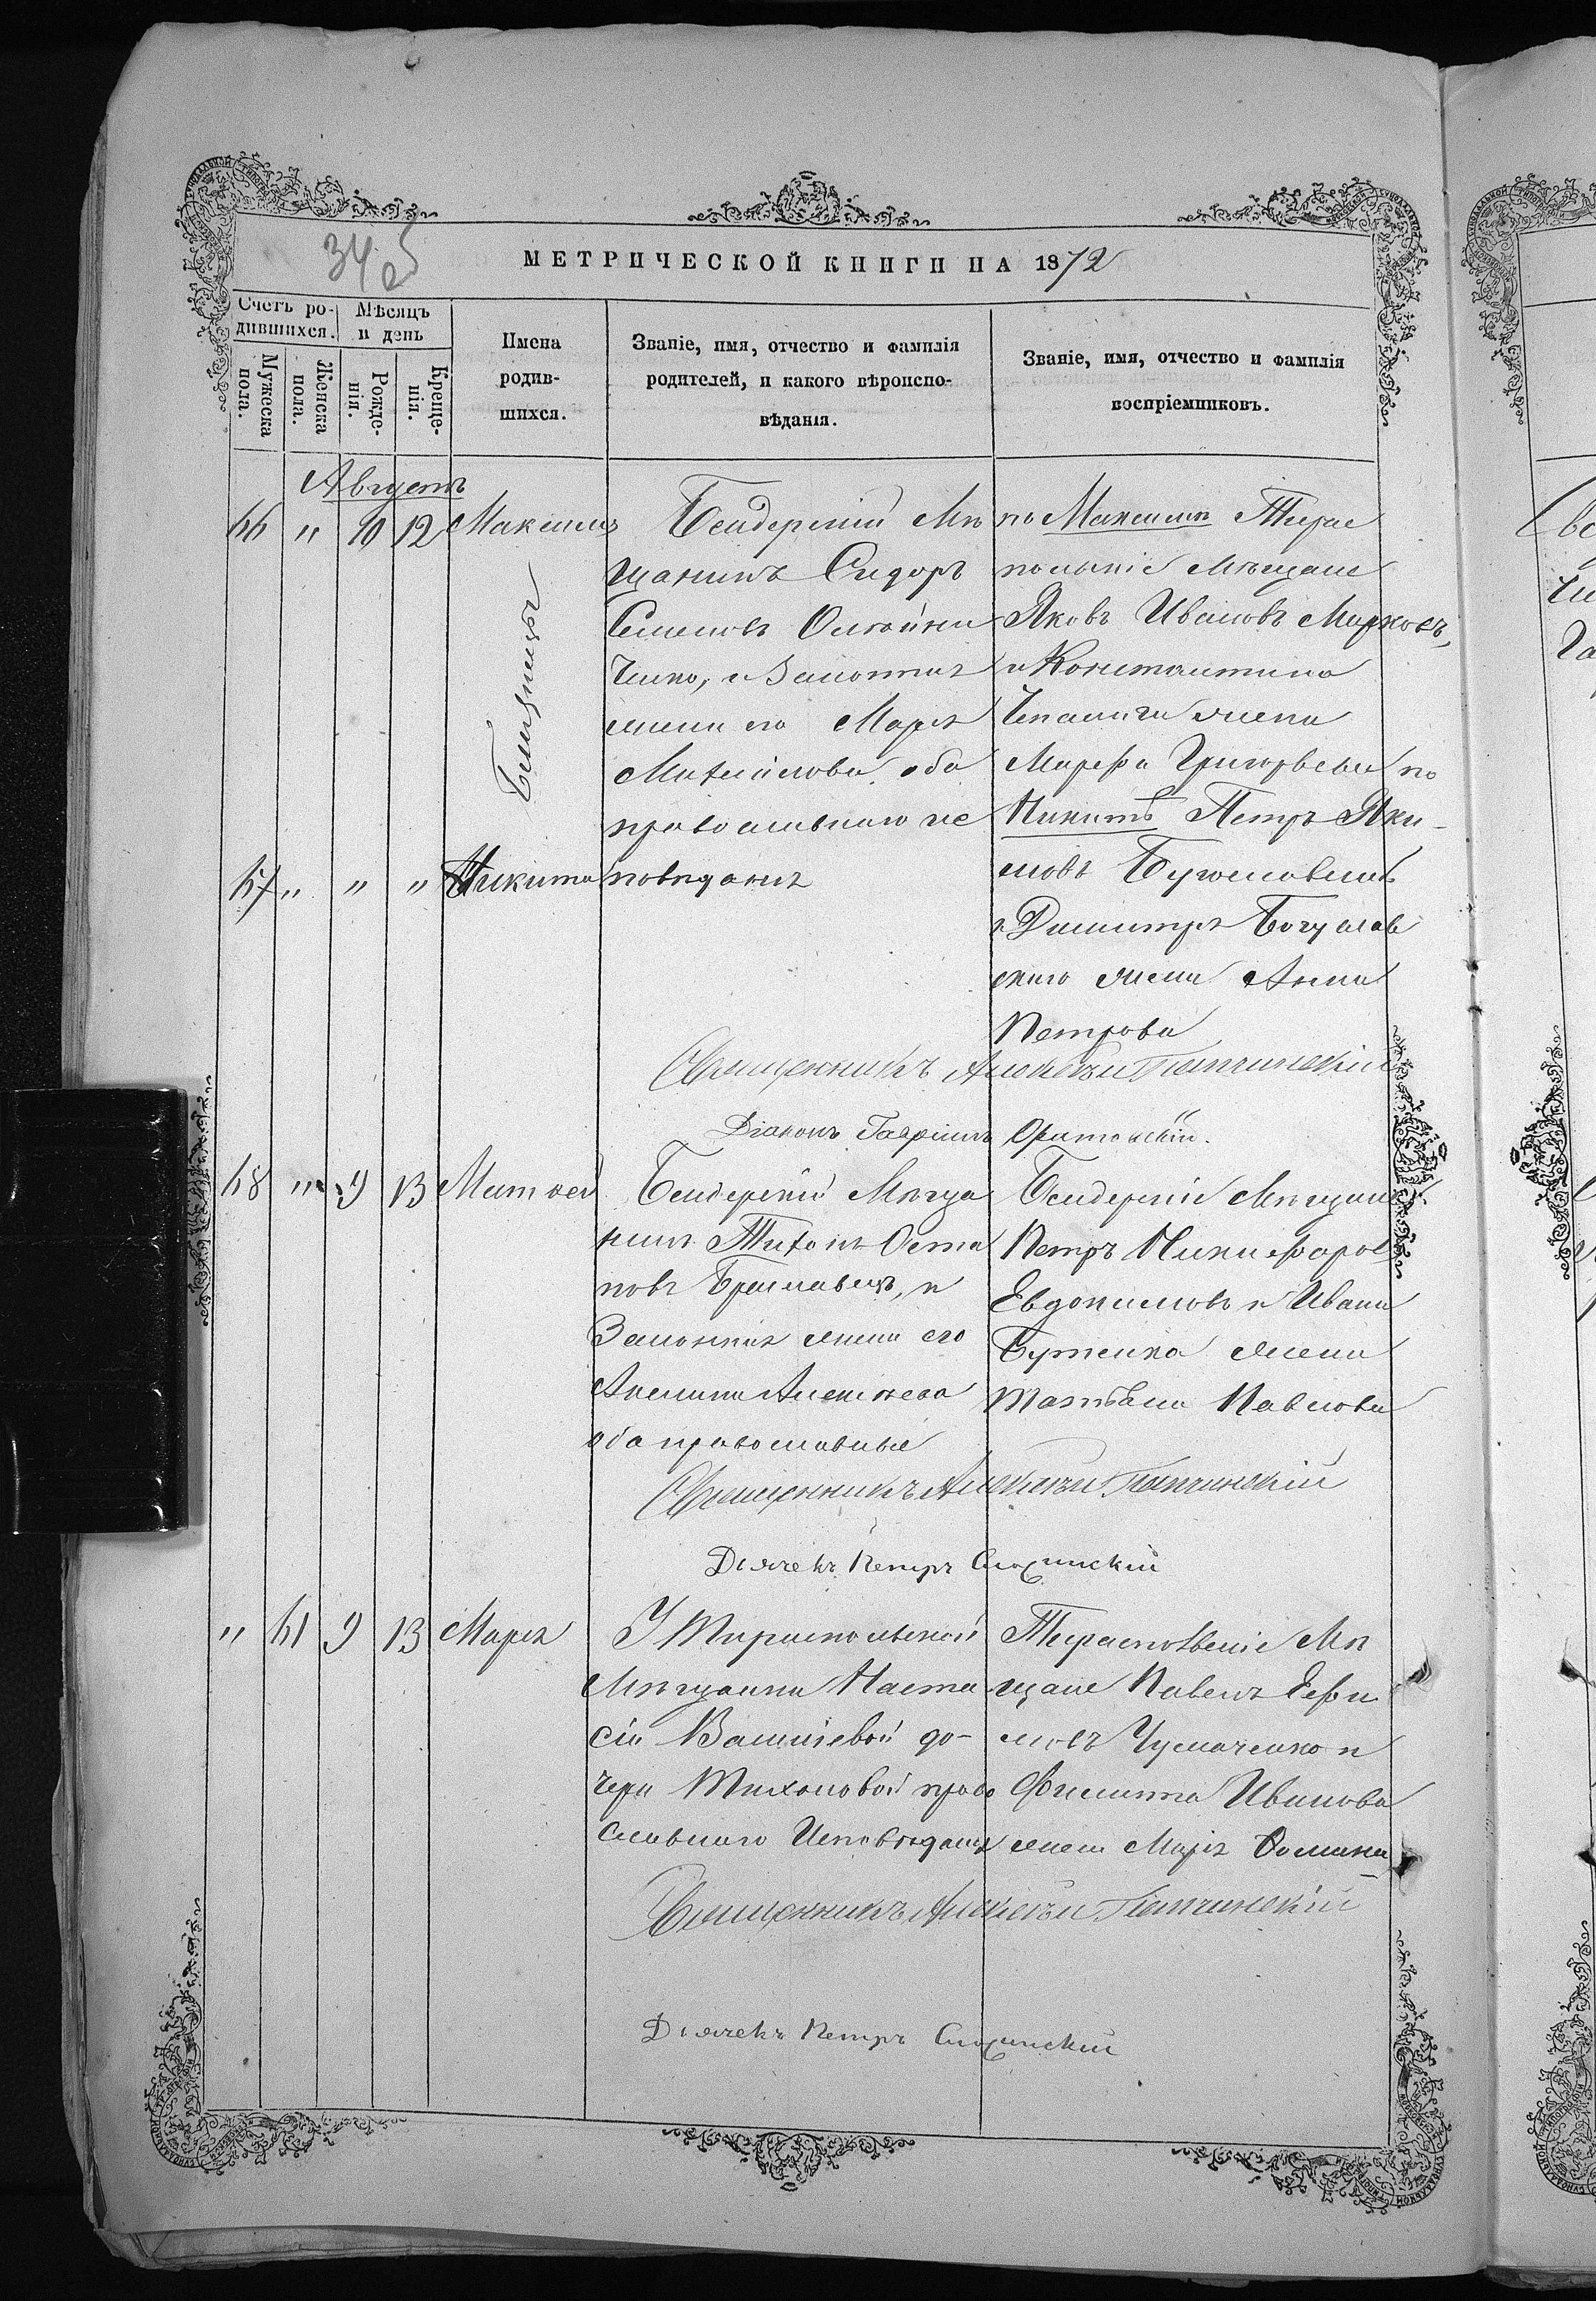 МЕТРИЧЕСКОЙ КНИГИ НА 1872
Счетъ ро-
дившихся.
Мѣсяцъ
и день
Мужеска
пола.
Женска
пола.
Рожде-
нія.
Креще-
нія.
Имена
родив-
шихся.
Званіе, имя, отчество и фамилія
родителей, и какого вѣроиспо-
вѣданія.
Званіе, имя, отчество и фамилія
воспріемниковъ.
Августъ
" 10 12 Максимъ
Близнецы
Бендерскій Мѣ
щанинъ Сидоръ
Семеновъ Олейни
ченко, и Законная
жена его Марія
Михайлова оба
православнаго ис
повѣданія
по Максимѣ Тирас
польскіе Мѣщане
Яковъ Ивановъ Марковъ,
и Константина
жена
Марфа Григорьева по
Никитѣ Петръ Яки-
мовъ
и Димитрія Богуслав
скаго жена Анна
Петрова
" " " Никита
Священникъ Алексѣй
Діаконъ Гавріилъ
" 9 13 Матѳей
Бендерскій Мѣща
нинъ Тихонъ Оста
повъ Браславецъ, и
Законная жена его
Акилина Алексѣева
оба православные
Бендерскіе Мѣщане
Петръ Никифоровъ
Евдокимовъ и Ивана
Бутенка жена
Татьяна Павлова
Священникъ Алексѣй
Дьячекъ Петръ
" 9 13 Марія
У Тираспольской
Мѣщанки Наста
сіи Васильевой до-
чери Тихоновой право
славнаго Исповѣданія
Тираспольскіе Мѣ
щане Павелъ Ефи
мовъ Чумаченко и
Филиппа Иванова
жена Марія Фомина
Священникъ Алексѣй
Дьячекъ Петръ